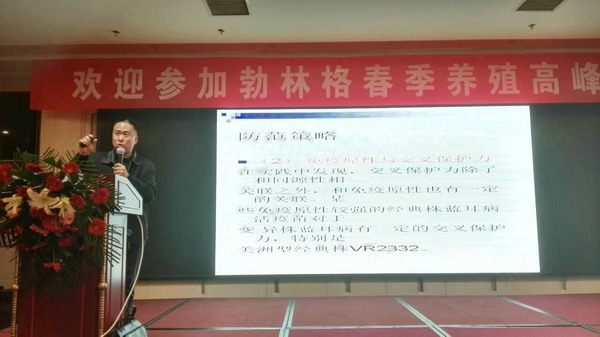 欢迎参加勃林格春季养殖高峰
防范策略
（2）免疫原性与交叉保护力
在实践中发现，交叉保护力除了
和同源性相
关联之外，和免疫原性也有一定
的关联。是
些免疫原性较强的经典株蓝耳病
活疫苗对于
变异株蓝耳病有一定的交叉保护
力，特别是
美洲型经典株VR2332。